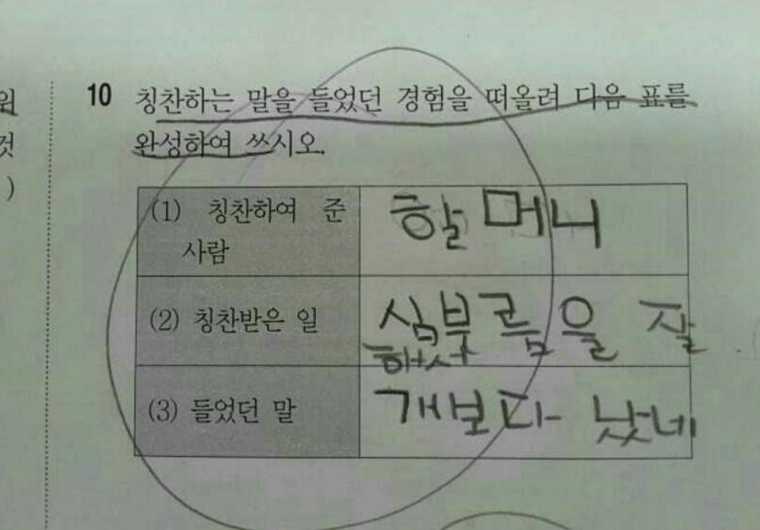 10 칭찬하는 말을 들었던 경험을 떠올려 다음 표를
완성하여 쓰시오.
(1) 칭찬하여 준
사람
할머니
(2) 칭찬받은 일
심부름을 잘
했
(3) 들었던 말
개보다 낫네
것
)